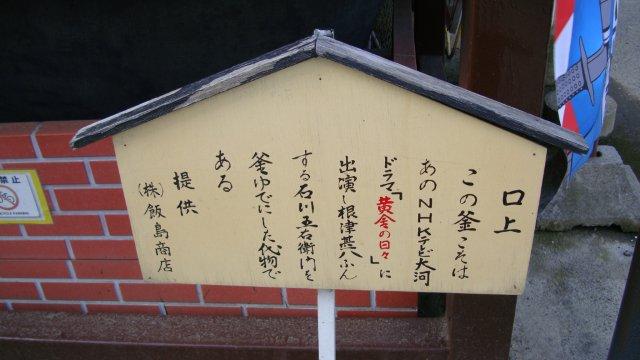 口上
この釜こそは
あのNHKテレビ大河
ドラマ「黄金の日々」に
出演し根津甚八ふん
する石川五右衛門を
釜ゆでにした代物で
ある
提供
(株)飯島商店
禁止